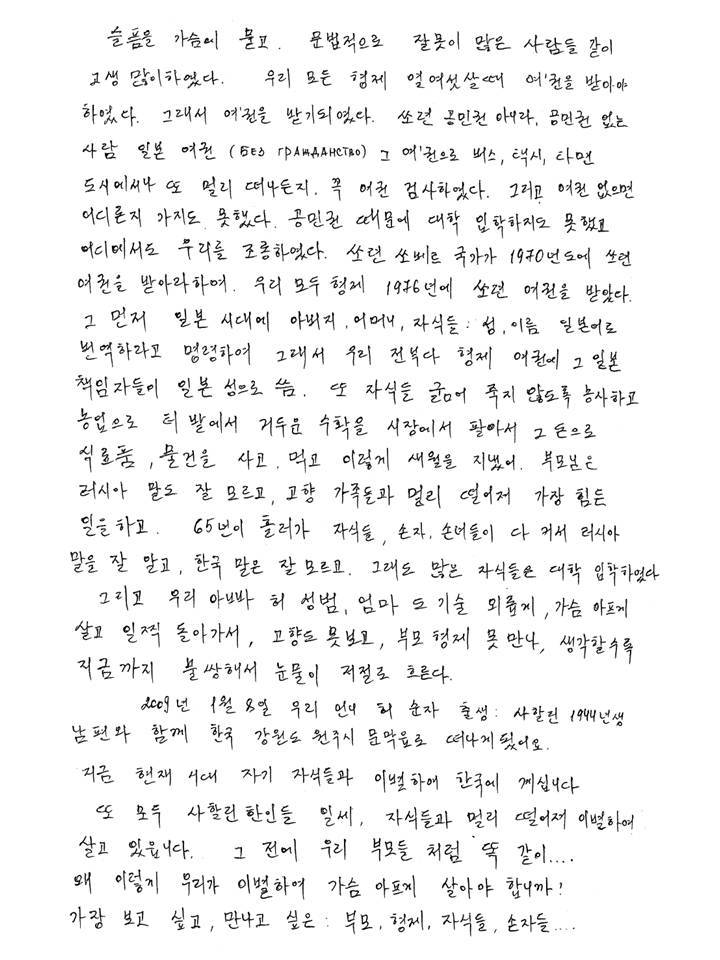 슬픔을 가슴에 묻고. 문법적으로 잘못이 많은 사람들 같이
고생 많이하였다. 우리 모든 형제 열여섯살때 여권을 받아야
하였다. 그래서 여권을 받기되였다. 쏘련 공민권 아니라, 공민권 없는
사람 일본 여권 (БЕЗ ГРАЖДАНСТВО) 그 여권으로 버스, 택시, 타면
도시에서나 또 멀리 떠나든지. 꼭 여권 검사하였다. 그리고 여권 없으면
어디론지 가지도 못했다. 공민권 때문에 대학 입학하지도 못했고
어디에서도 우리를 조롱하였다. 쏘련 쏘베트 국가가 1970년도에 쏘련
여권을 받아라하여. 우리 모두 형제 1976년에 쏘련 여권을 받았다.
그 먼저 일본 시대에 아버지, 어머니, 자식들: 성, 이름 일본어로
번역하라고 명령하여 그래서 우리 전부다 형제 여권에 그 일본
책임자들이 일본 성으로 씀. 또 자식들 굶어 죽지 않도록 농사하고
농업으로 터 밭에서 거두운 수확을 시장에서 팔아서 그 돈으로
식료품, 물건을 사고, 먹고 이렇게 새월을 지냈어. 부모님은
러시아 말도 잘 모르고, 고향 가족들과 멀리 떨어져 가장 힘든
일을하고. 65년이 흘러가 자식들, 손자·손녀들이 다 커서 러시아
말을 잘 알고, 한국 말은 잘 모르고. 그래도 많은 자식들은 대학 입학하였다
그리고 우리 아빠 허 성범, 엄마 도기술 외롭게, 가슴 아프게
살고 일찍 돌아가서, 고향도 못보고, 부모 형제 못 만나, 생각할수록
지금까지 불쌍해서 눈물이 저절로 흐른다.
2009년 1월 8일 우리 언니 허 순자 출생: 사할린 1944년생
남편와 함께 한국 강원도 원주시 문막읍로 떠나게됬어요.
지금 현재 시대 자기 자식들과 이별하여 한국에 께십니다
또 모두 사할린한인들 일세, 자식들과 멀리 떨어져 이별하여
살고 있읍니다. 그 전에 우리 부모들 처럼 똑 같이....
왜 이렇게 우리가 이별하여 가슴 아프게 살아야 합니까!
가장 보고 싶고, 만나고 싶은: 부모, 형제, 자식들, 손자들....